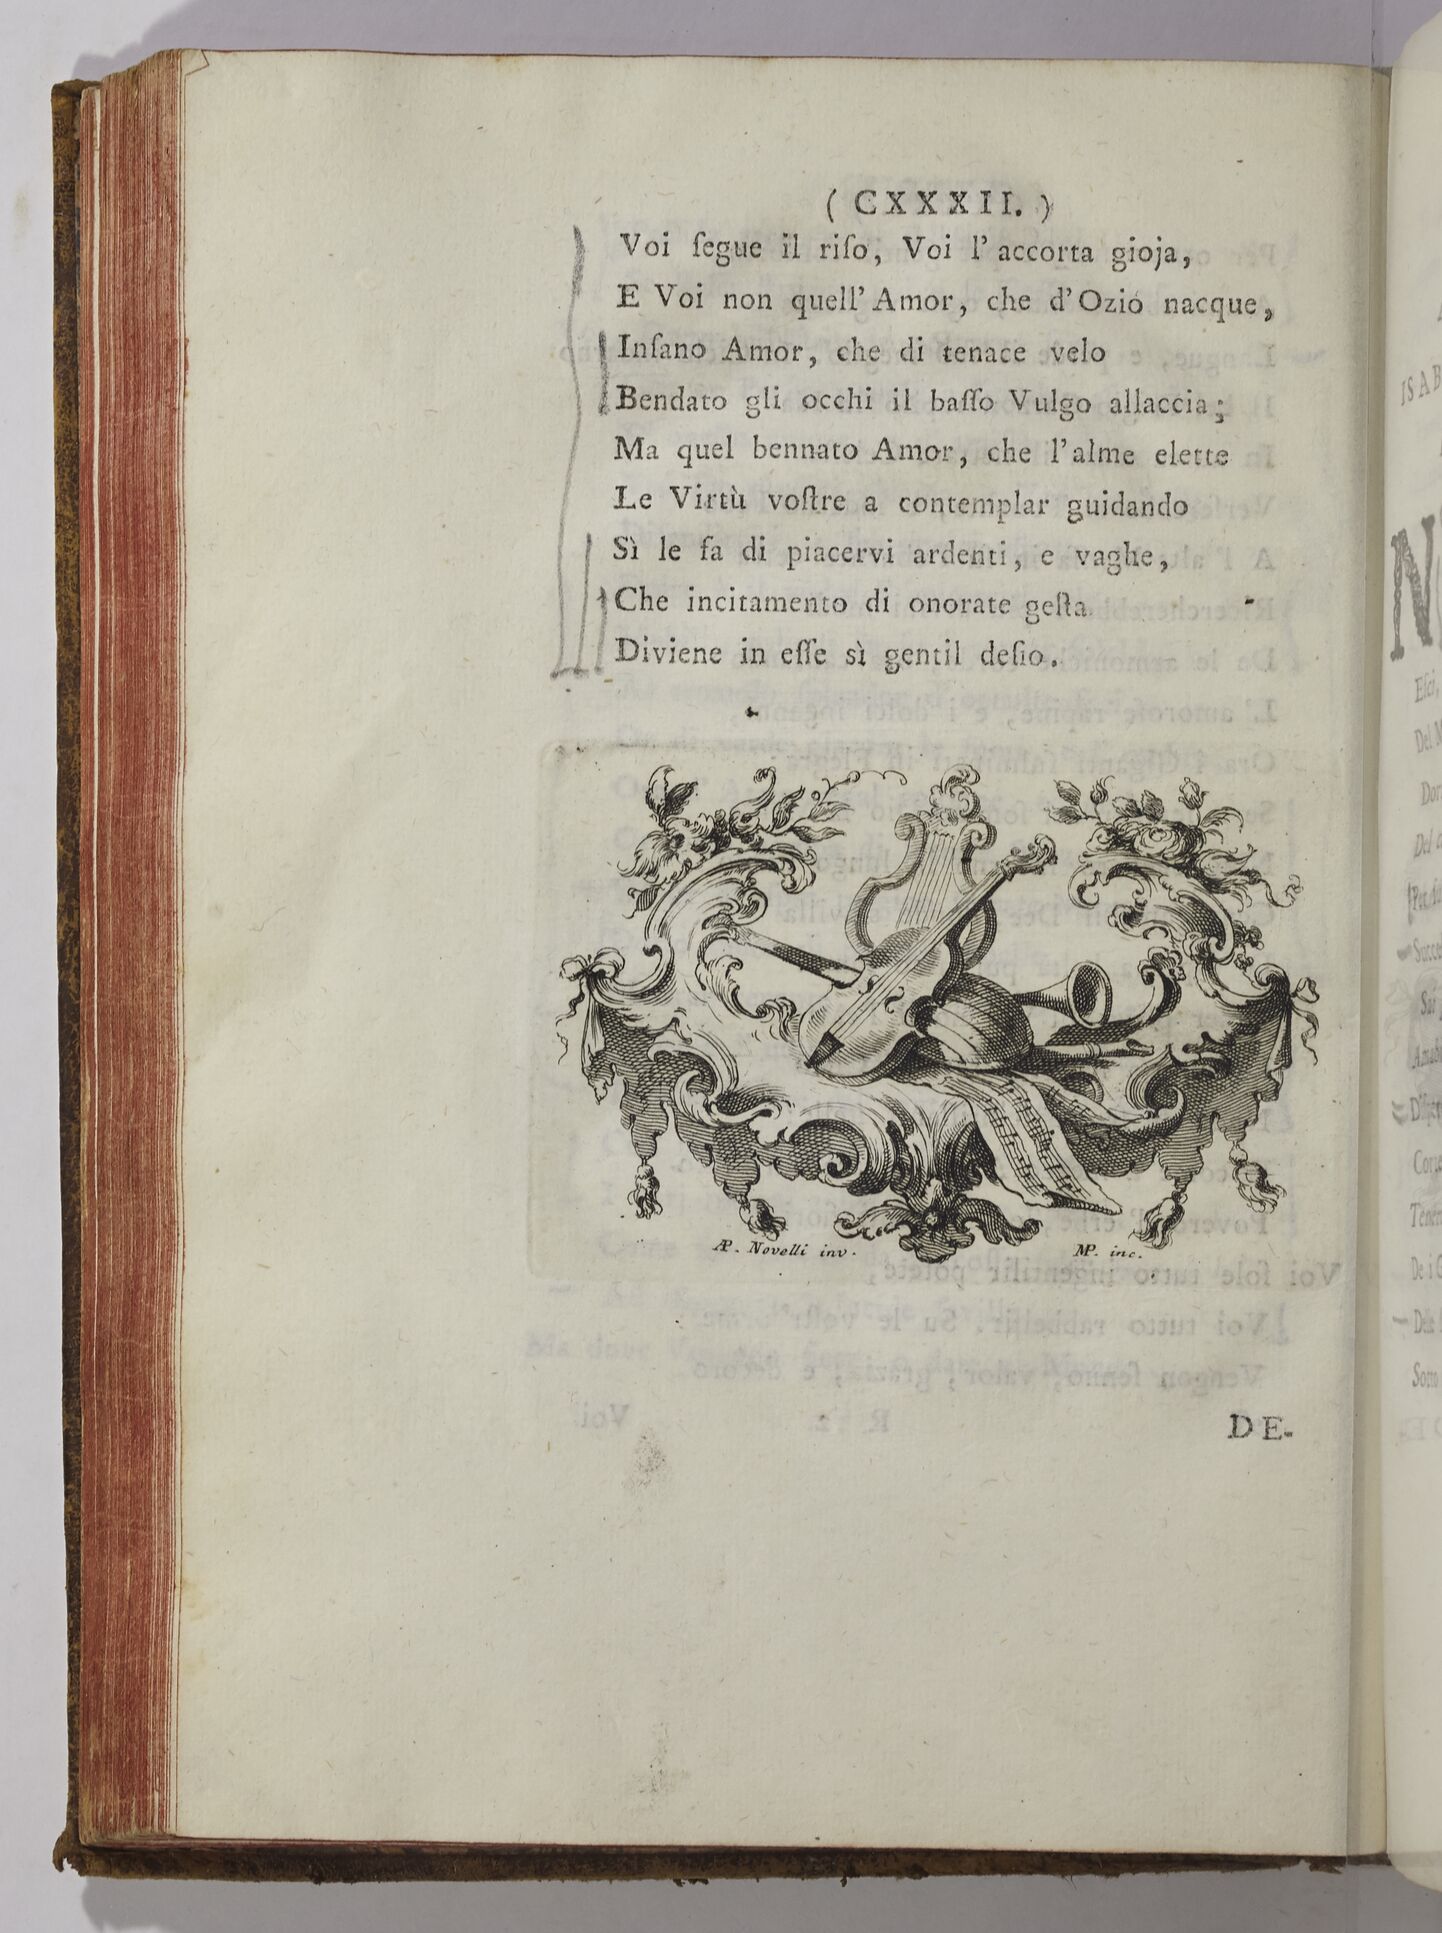 ( CXXXII. )
Voi ſegue il riſo, Voi l' accorta gioja,
E Voi non quell' Amor, che d' Ozio nacque,
Inſano Amor, che di tenace velo
Bendato gli occhi il baſſo Vulgo allaccia;
Ma quel bennato Amor, che l' alme elette
Le Virtù voſtre a contemplar guidando
Sì le fa di piacervi ardenti, e vaghe,
Che incitamento di onorate geſta
Diviene in eſſe sì gentil deſio.
AP. Novelli inv.
MP. inc.
DE-
ISAB
N
Eſci,
Del M
Succe
Sai
Sotto